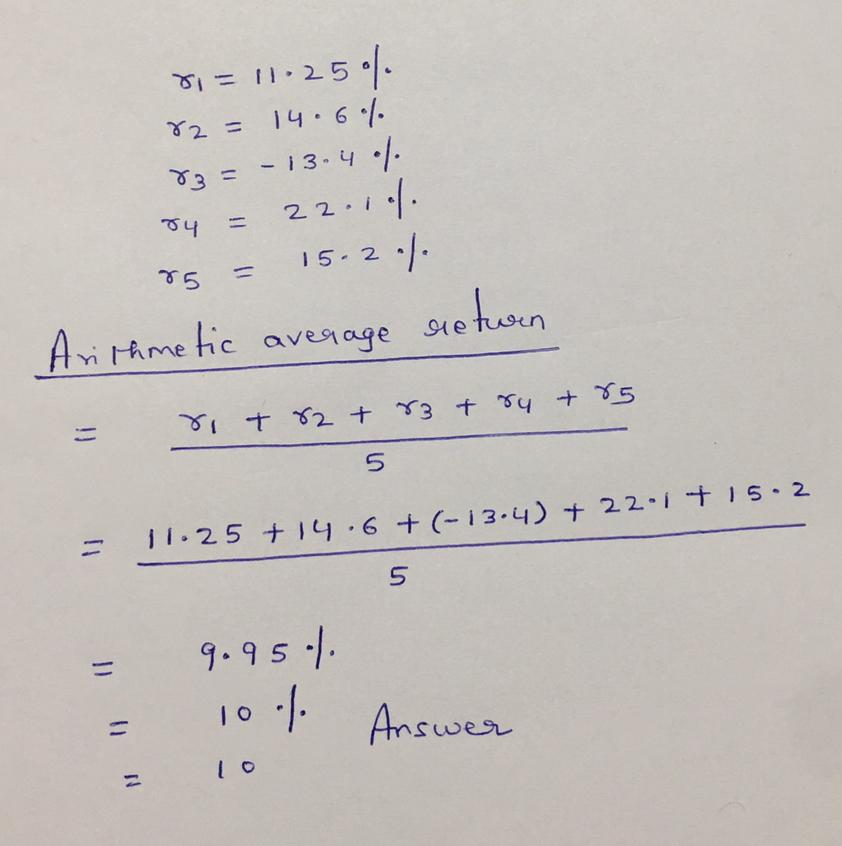 r1 = 11.25 %
r2 = 14.6 %
r3 = -13.4 %
r4 = 22.1 %
r5 = 15.2 %
Arithmetic average return
= r1 + r2 + r3 + r4 + r5
5
= 11.25 + 14.6 + (-13.4) + 22.1 + 15.2
5
= 9.95 %
= 10 % Answer
= 10